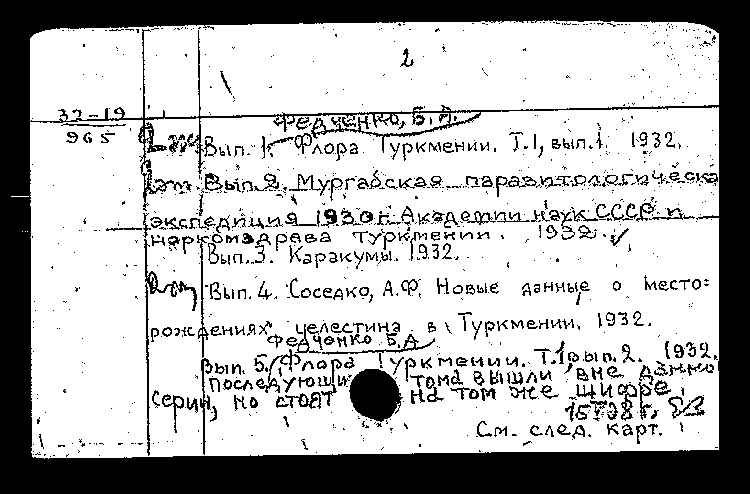 2
32-19
965
Федченко, Б.А.
Вып. 1. Флора Туркмении. Т.1, вып.1. 1932.
Вып. 2. Мургабская паразитологическа
экспедиция 1930 г. Академии наук СССР и
наркомздрава Туркмении. 1932.
Вып. 3. Каракумы. 1932.
Вып. 4. Соседко, А.Ф. Новые данные о место-
рождениях целестина в Туркмении. 1932.
Федченко Б.А
Вып. 5. Флора Туркмении. Т.1 вып. 2. 1932.
Последующи тома вышли вне данно
серии, но стоят на том же шифре.
См. след. карт.